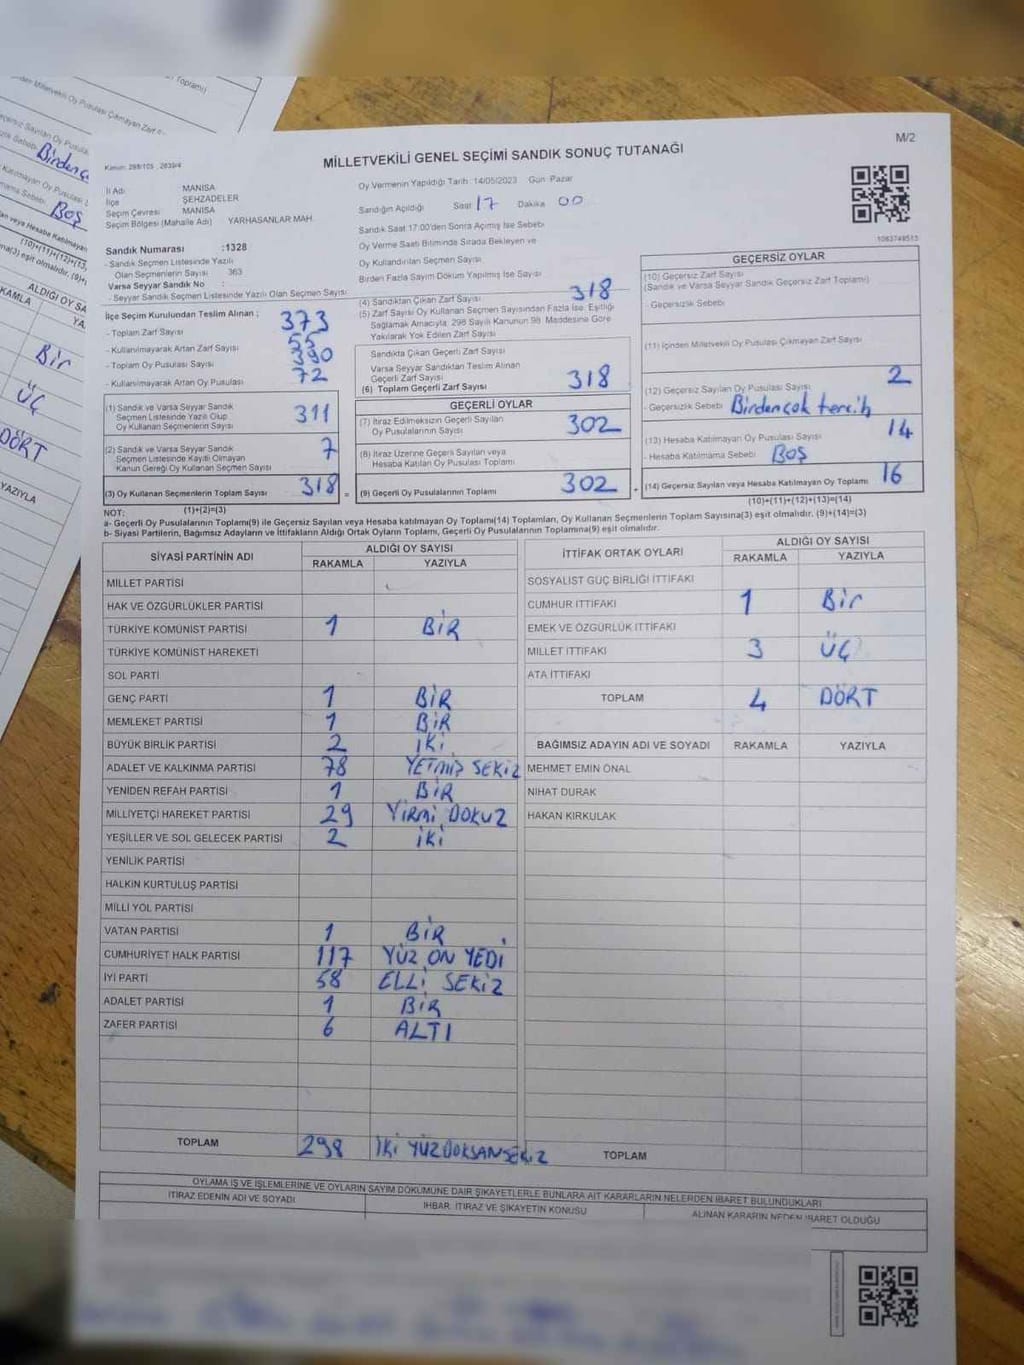 Toplamı)
Birdenç
Boş
(10)+(11)+(12)+
ALDIĞI OY SA
KAMLA
YA
Bir
ÜÇ
DÖRT
YAZIYLA
M/2
MİLLETVEKİLİ GENEL SEÇİMİ SANDIK SONUÇ TUTANAĞI
İl Adı MANİSA
İlçe ŞEHZADELER
Seçim Çevresi MANİSA
Seçim Bölgesi (Mahalle Adı) YARHASANLAR MAH.
Oy Vermenin Yapıldığı Tarih :14/05/2023 Gün :Pazar
Sandığın Açıldığı Saat 17 Dakika 00
Sandık Saat 17.00'den Sonra Açılmış İse Sebebi
Oy Verme Saati Bitiminde Sırada Bekleyen ve
Oy Kullandırılan Seçmen Sayısı
Birden Fazla Sayım Döküm Yapılmış İse Sayısı
1063749515
Sandık Numarası :1328
- Sandık Seçmen Listesinde Yazılı
Olan Seçmenlerin Sayısı 363
Varsa Seyyar Sandık No :
- Seyyar Sandık Seçmen Listesinde Yazılı Olan Seçmen Sayısı
İlçe Seçim Kurulundan Teslim Alınan ;
- Toplam Zarf Sayısı 373
- Kullanılmayarak Artan Zarf Sayısı 55
- Toplam Oy Pusulası Sayısı 390
- Kullanılmayarak Artan Oy Pusulası 72
(1) Sandık ve Varsa Seyyar Sandık
Seçmen Listesinde Yazılı Olup
Oy Kullanan Seçmenlerin Sayısı 311
(2) Sandık ve Varsa Seyyar Sandık
Seçmen Listesinde Kayıtlı Olmayan
Kanun Gereği Oy Kullanan Seçmen Sayısı 7
(3) Oy Kullanan Seçmenlerin Toplam Sayısı 318 =
(1)+(2)=(3)
(4) Sandıktan Çıkan Zarf Sayısı 318
(5) Zarf Sayısı Oy Kullanan Seçmen Sayısından Fazla İse, Eşitliği
Sağlamak Amacıyla, 298 Sayılı Kanunun 98. Maddesine Göre
Yakılarak Yok Edilen Zarf Sayısı
Sandıkta Çıkan Geçerli Zarf Sayısı
Varsa Seyyar Sandıktan Teslim Alınan
Geçerli Zarf Sayısı
(6) Toplam Geçerli Zarf Sayısı 318
GEÇERLİ OYLAR
(7) İtiraz Edilmeksizin Geçerli Sayılan
Oy Pusulalarının Sayısı 302
(8) İtiraz Üzerine Geçerli Sayılan veya
Hesaba Katılan Oy Pusulası Toplamı
(9) Geçerli Oy Pusulalarının Toplamı 302 +
GEÇERSİZ OYLAR
(10) Geçersiz Zarf Sayısı
(Sandık ve Varsa Seyyar Sandık Geçersiz Zarf Toplamı)
- Geçersizlik Sebebi
(11) İçinden Milletvekili Oy Pusulası Çıkmayan Zarf Sayısı
(12) Geçersiz Sayılan Oy Pusulası Sayısı 2
- Geçersizlik Sebebi Birdençok tercih
(13) Hesaba Katılmayan Oy Pusulası Sayısı 14
- Hesaba Katılmama Sebebi Boş
(14) Geçersiz Sayılan veya Hesaba Katılmayan Oy Toplamı 16
(10)+(11)+(12)+(13)=(14)
NOT:
a- Geçerli Oy Pusulalarının Toplamı(9) ile Geçersiz Sayılan veya Hesaba katılmayan Oy Toplamı(14) Toplamları, Oy Kullanan Seçmenlerin Toplam Sayısına(3) eşit olmalıdır. (9)+(14)=(3)
b- Siyasi Partilerin, Bağımsız Adayların ve İttifakların Aldığı Ortak Oyların Toplamı, Geçerli Oy Pusulalarının Toplamına(9) eşit olmalıdır.
SİYASİ PARTİNİN ADI ALDIĞI OY SAYISI
RAKAMLA YAZIYLA
MİLLET PARTİSİ
HAK VE ÖZGÜRLÜKLER PARTİSİ
TÜRKİYE KOMÜNİST PARTİSİ 1 BİR
TÜRKİYE KOMÜNİST HAREKETİ
SOL PARTİ
GENÇ PARTİ 1 BİR
MEMLEKET PARTİSİ 1 BİR
BÜYÜK BİRLİK PARTİSİ 2 İKİ
ADALET VE KALKINMA PARTİSİ 78 YETMİŞ SEKİZ
YENİDEN REFAH PARTİSİ 1 BİR
MİLLİYETÇİ HAREKET PARTİSİ 29 YİRMİ DOKUZ
YEŞİLLER VE SOL GELECEK PARTİSİ 2 İKİ
YENİLİK PARTİSİ
HALKIN KURTULUŞ PARTİSİ
MİLLİ YOL PARTİSİ
VATAN PARTİSİ 1 BİR
CUMHURİYET HALK PARTİSİ 117 YÜZ ON YEDİ
İYİ PARTİ 58 ELLİ SEKİZ
ADALET PARTİSİ 1 BİR
ZAFER PARTİSİ 6 ALTI
TOPLAM 298 İKİ YÜZDOKSANSEKİZ
İTTİFAK ORTAK OYLARI ALDIĞI OY SAYISI
RAKAMLA YAZIYLA
SOSYALİST GÜÇ BİRLİĞİ İTTİFAKI
CUMHUR İTTİFAKI 1 Bir
EMEK VE ÖZGÜRLÜK İTTİFAKI
MİLLET İTTİFAKI 3 ÜÇ
ATA İTTİFAKI
TOPLAM 4 DÖRT
BAĞIMSIZ ADAYIN ADI VE SOYADI RAKAMLA YAZIYLA
MEHMET EMİN ÖNAL
NİHAT DURAK
HAKAN KIRKULAK
TOPLAM
OYLAMA İŞ VE İŞLEMLERİNE VE OYLARIN SAYIM DÖKÜMÜNE DAİR ŞİKAYETLERLE BUNLARA AİT KARARLARIN NELERDEN İBARET BULUNDUKLARI
İTİRAZ EDENİN ADI VE SOYADI İHBAR, İTİRAZ VE ŞİKAYETİN KONUSU ALINAN KARARIN NEDEN İBARET OLDUĞU